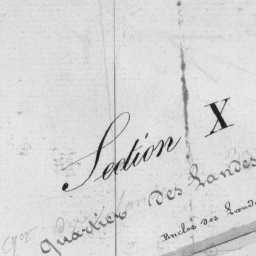 Section X
Quartier des Landes
des Lande